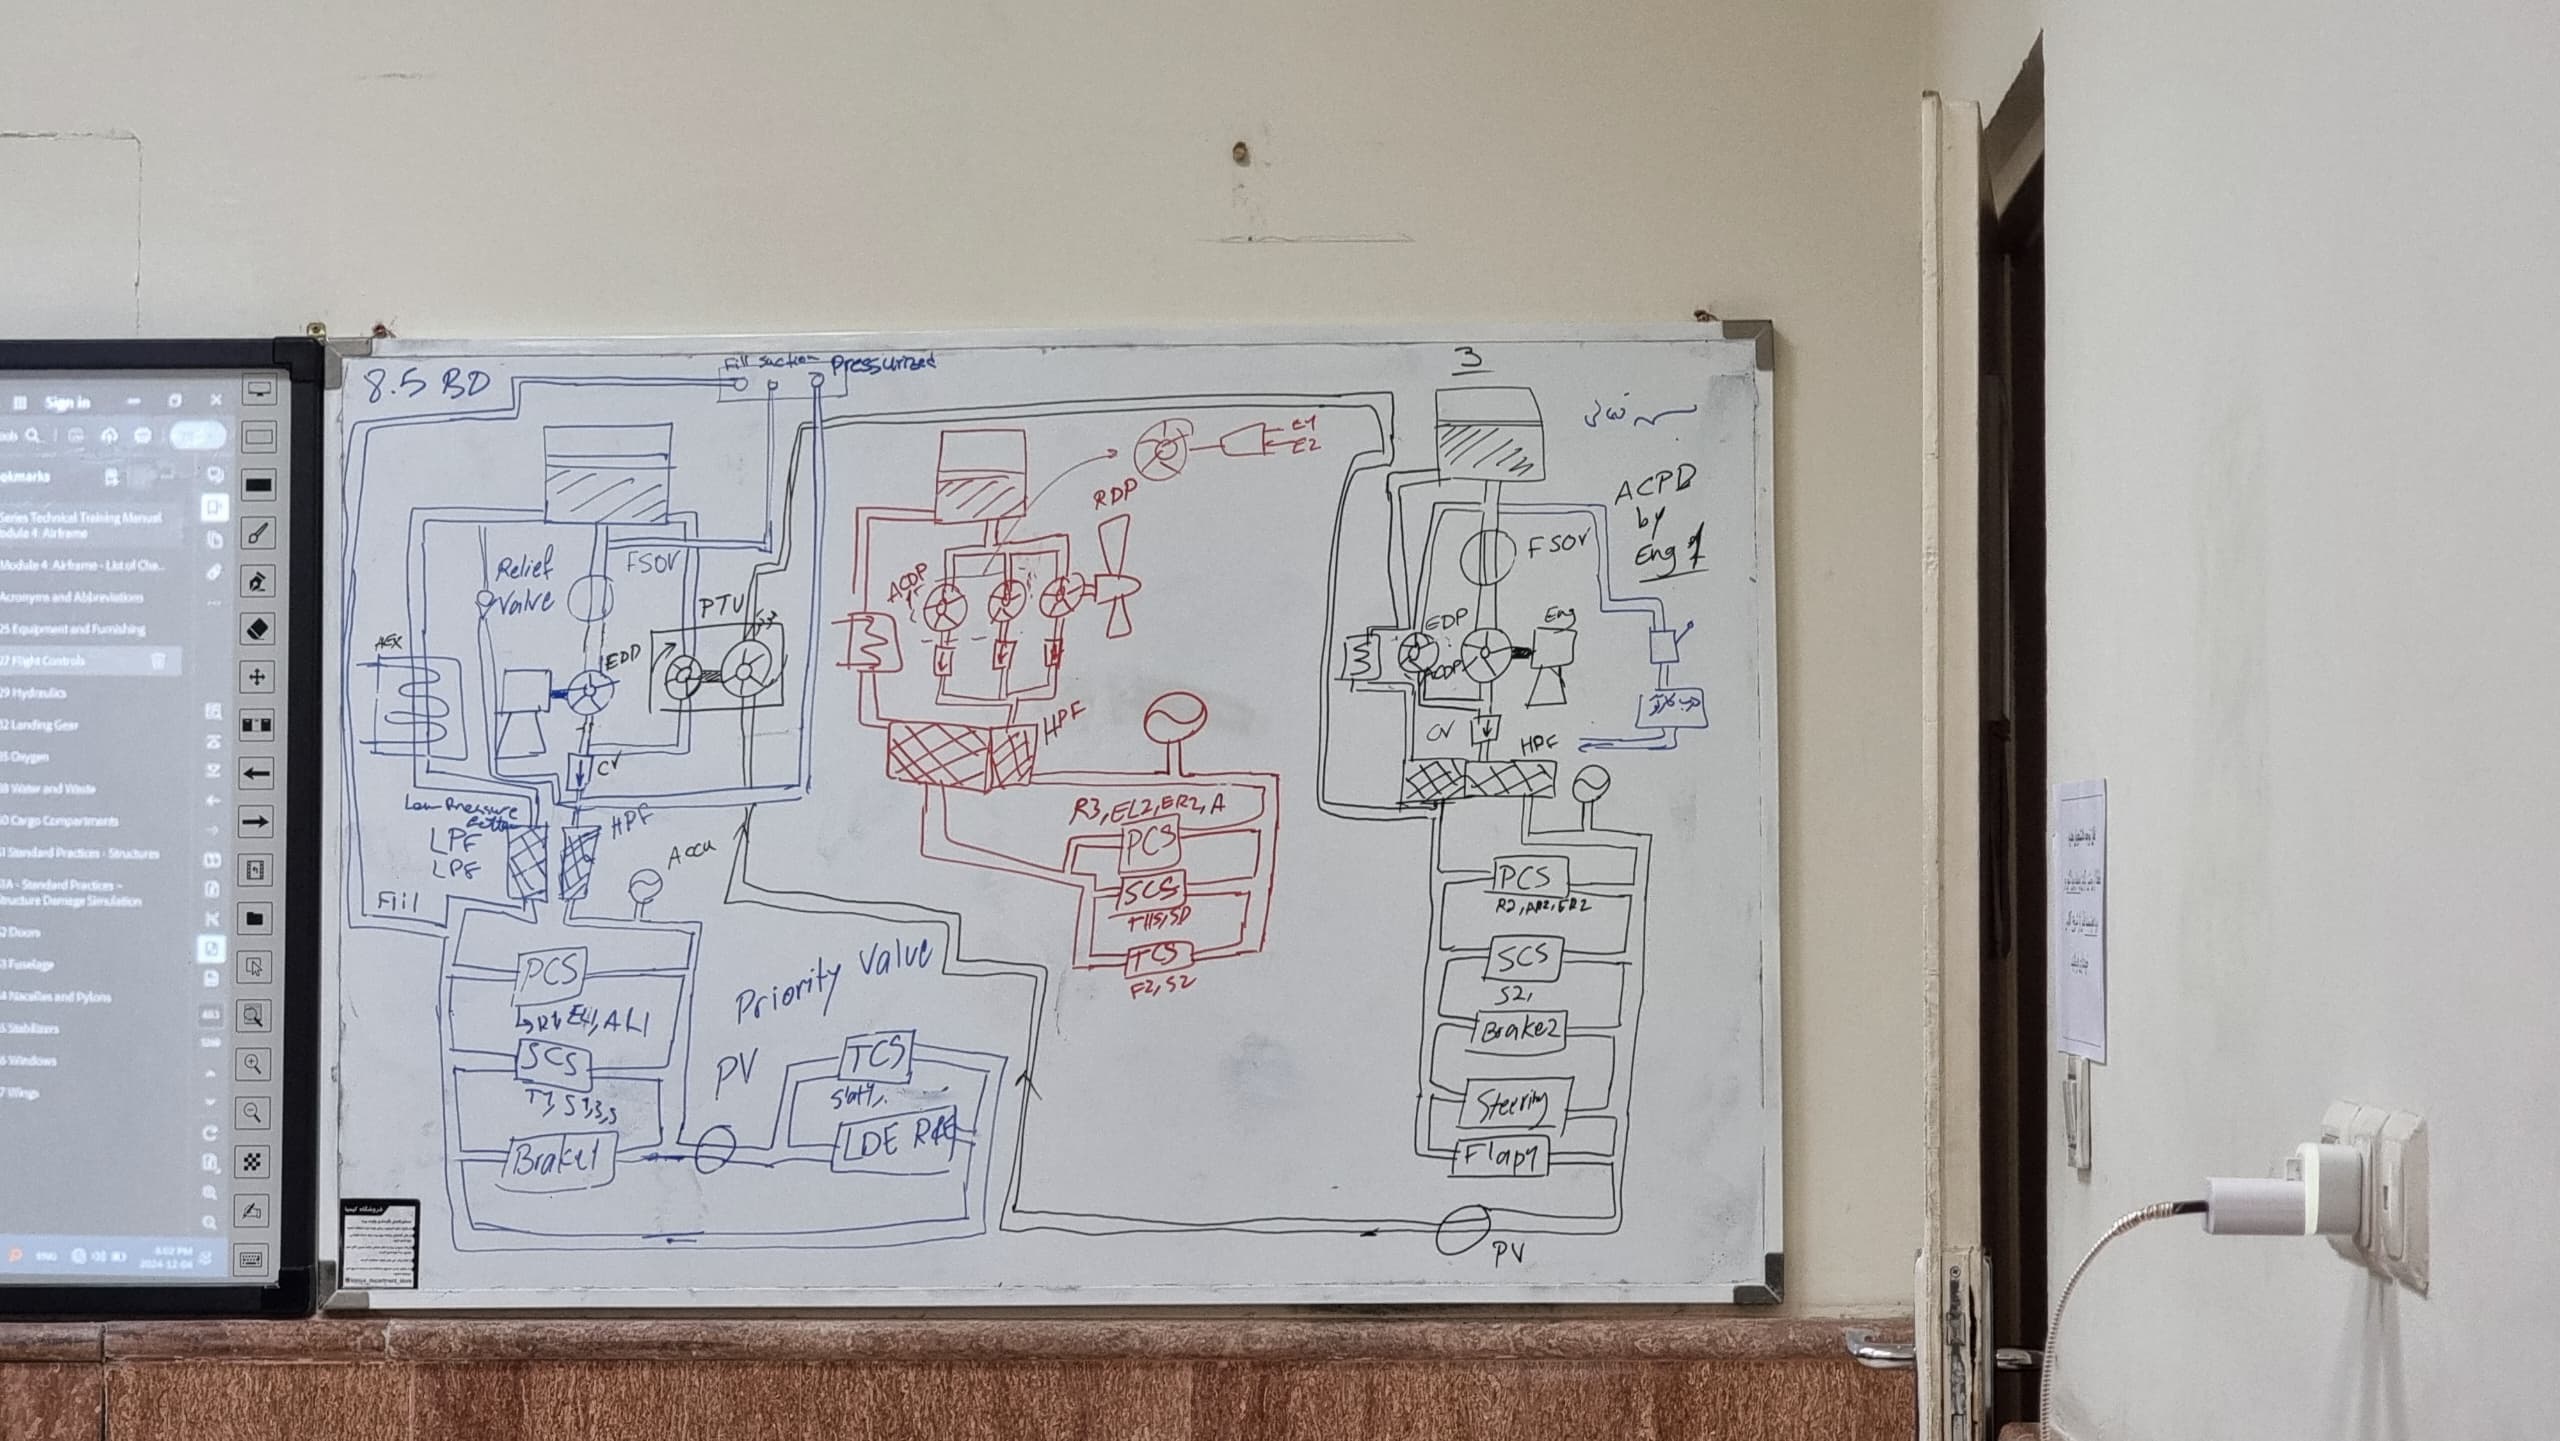 Sign in
Series Technical Training Manual
Module 4: Airframe
Module 4: Airframe - List of Cha...
Acronyms and Abbreviations
25 Equipment and Furnishing
27 Flight Controls
29 Hydraulics
32 Landing Gear
35 Oxygen
38 Water and Waste
50 Cargo Compartments
51 Standard Practices - Structures
51A - Standard Practices -
Structure Damage Simulation
52 Doors
53 Fuselage
54 Nacelles and Pylons
55 Stabilizers
56 Windows
57 Wings
ENG
6:02 PM
2024-12-04
8.5 BD
Fill suction pressurized
Relief
Valve
FSOV
PTU
AEX
EDD
CV
Low Pressure
LPF
LPF
HPF
Accu
Fill
PCS
SCS
Brake1
Priority Valve
PV
TCS
LDE
E1
E2
RDP
ACDP
HPF
R3, EL2, ER2, A
PCS
SCS
THS, SD
TCS
F2, S2
3
ACPD
by
Eng 1
FSOV
EDP
Eng
ACDP
CV
HPF
PCS
SCS
S2,
Brake2
Steering
Flap1
PV